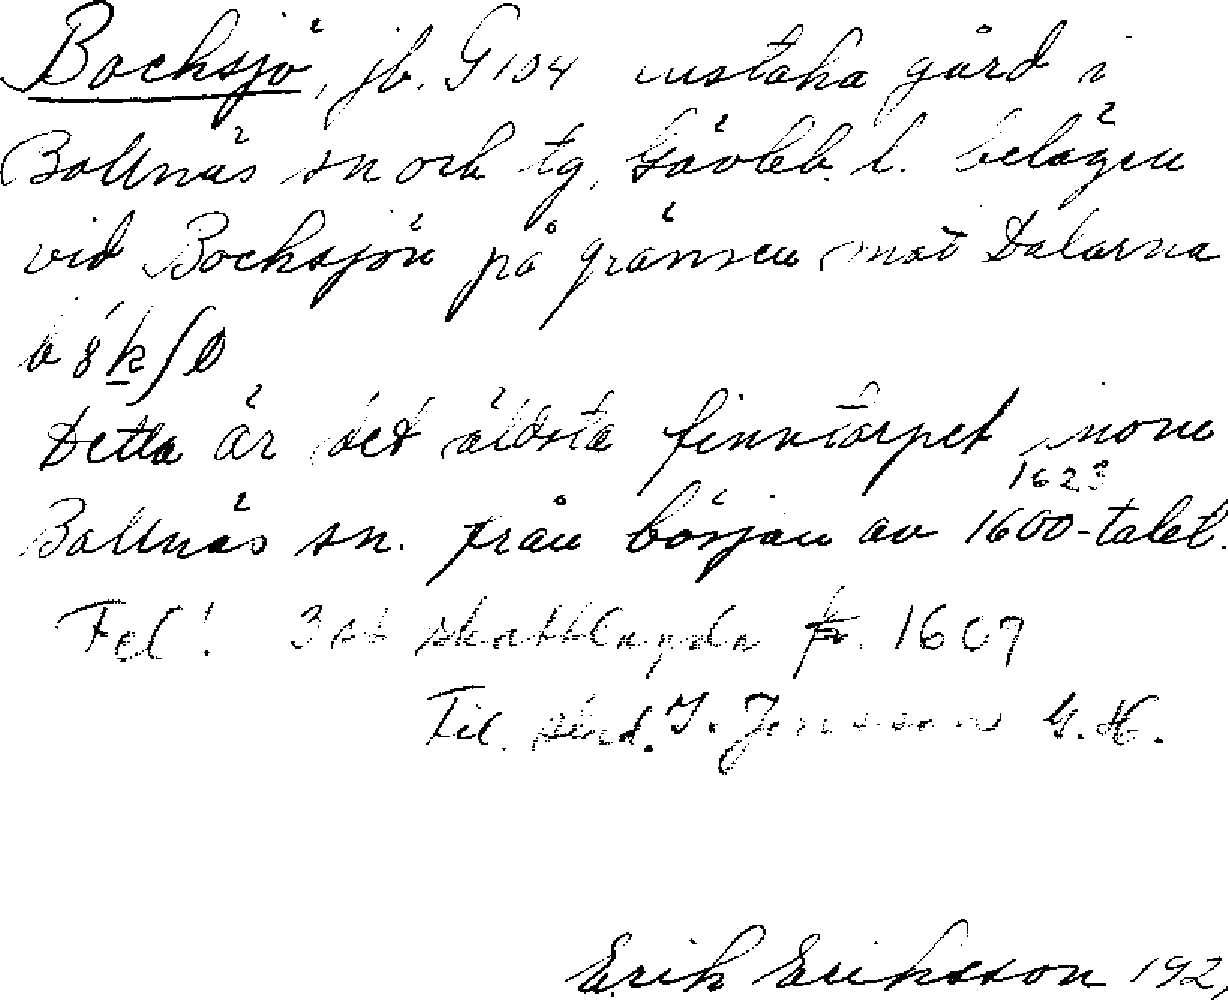 Bocksjö, jb. G 104 enstaka gård i
Bollnäs sn och tg, Gävleb. l. belägen
vid Bocksjön på gränsen mot Dalarna
Detta är det äldsta finntorpet inom
1623
Bollnäs sn. från början av 1600-talet.
Fel! 3 st skattlagda fr. 1607
Fil. stud. I. Jonsson G. H.
Erik Eriksson 192